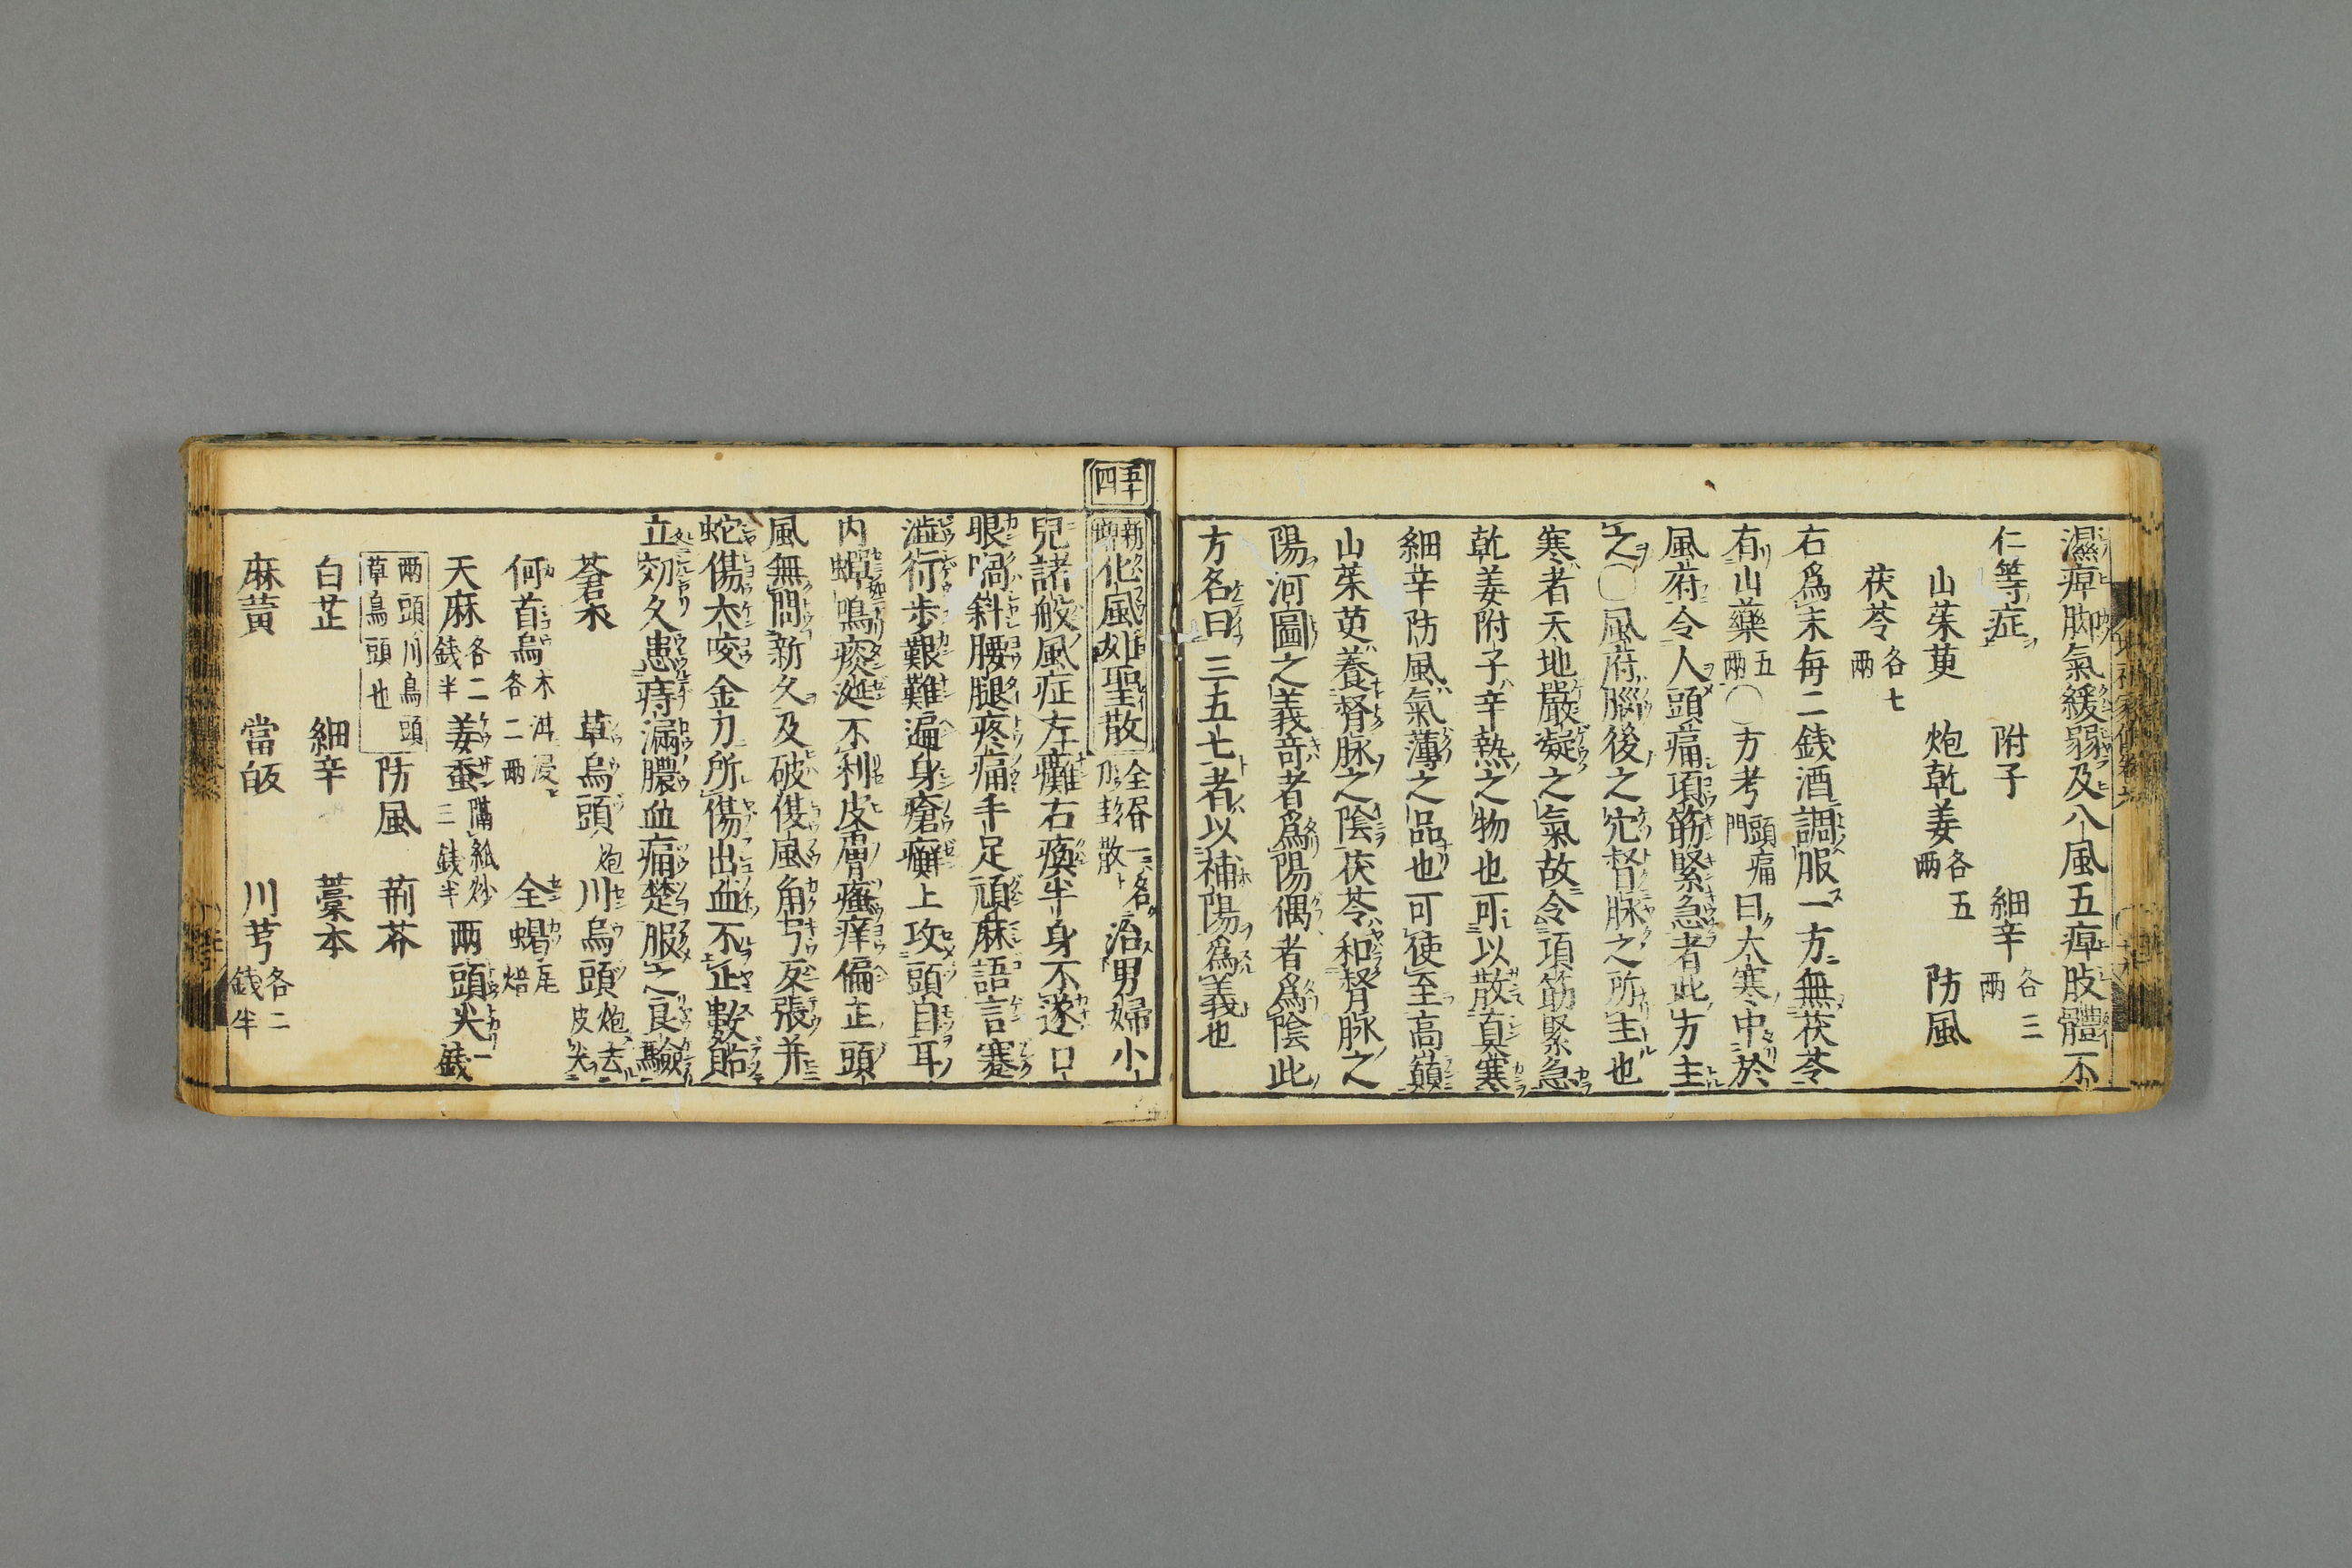 濕痺脚氣緩弱及八風五痺肢體不
仁等症 附子 細辛各三兩
山茱萸 炮乾姜各五兩 防風
茯苓各七兩
右爲末毎二銭酒調服一方無茯苓
有山藥五兩〇方考頭痛門曰大寒中於
風府令人頭痛項筋緊急者此方主
之〇風府腦後之穴督脉之所主也
寒者天地嚴凝之氣故令項筋緊急
乾姜附子辛熱之物也可以散眞寒
細辛防風氣薄之品也可使至高巔
山茱萸養督脉之陰茯苓和督脉之
陽河圖之義竒者爲陽偶者爲陰此
方名曰三五七者以補陽爲義也
五十四
化風処聖散 全書一名 散治男婦小
兒諸般風症左癱右瘓半身不遂口
眼喎斜腰腿疼痛手足頑麻語言蹇
澁行歩艱難遍身瘡癬上攻頭目耳
内蟬鳴痰涎不利皮膚瘙痒偏正頭
風無問新久及破傷風角弓反張并
蛇傷犬咬金刀所傷出血不止敷貼
立効久患痔漏膿血痛楚服之良驗
蒼朮 草烏頭炮 川烏頭炮去皮尖
何首烏米泔浸各二兩 全蝎尾焙
天麻各二銭半 姜蚕隔紙炒三銭半 兩頭尖一銭
兩頭川烏頭草烏頭也 防風 荊芥
白芷 細辛 藁本
麻黃 當皈 川芎各二銭半